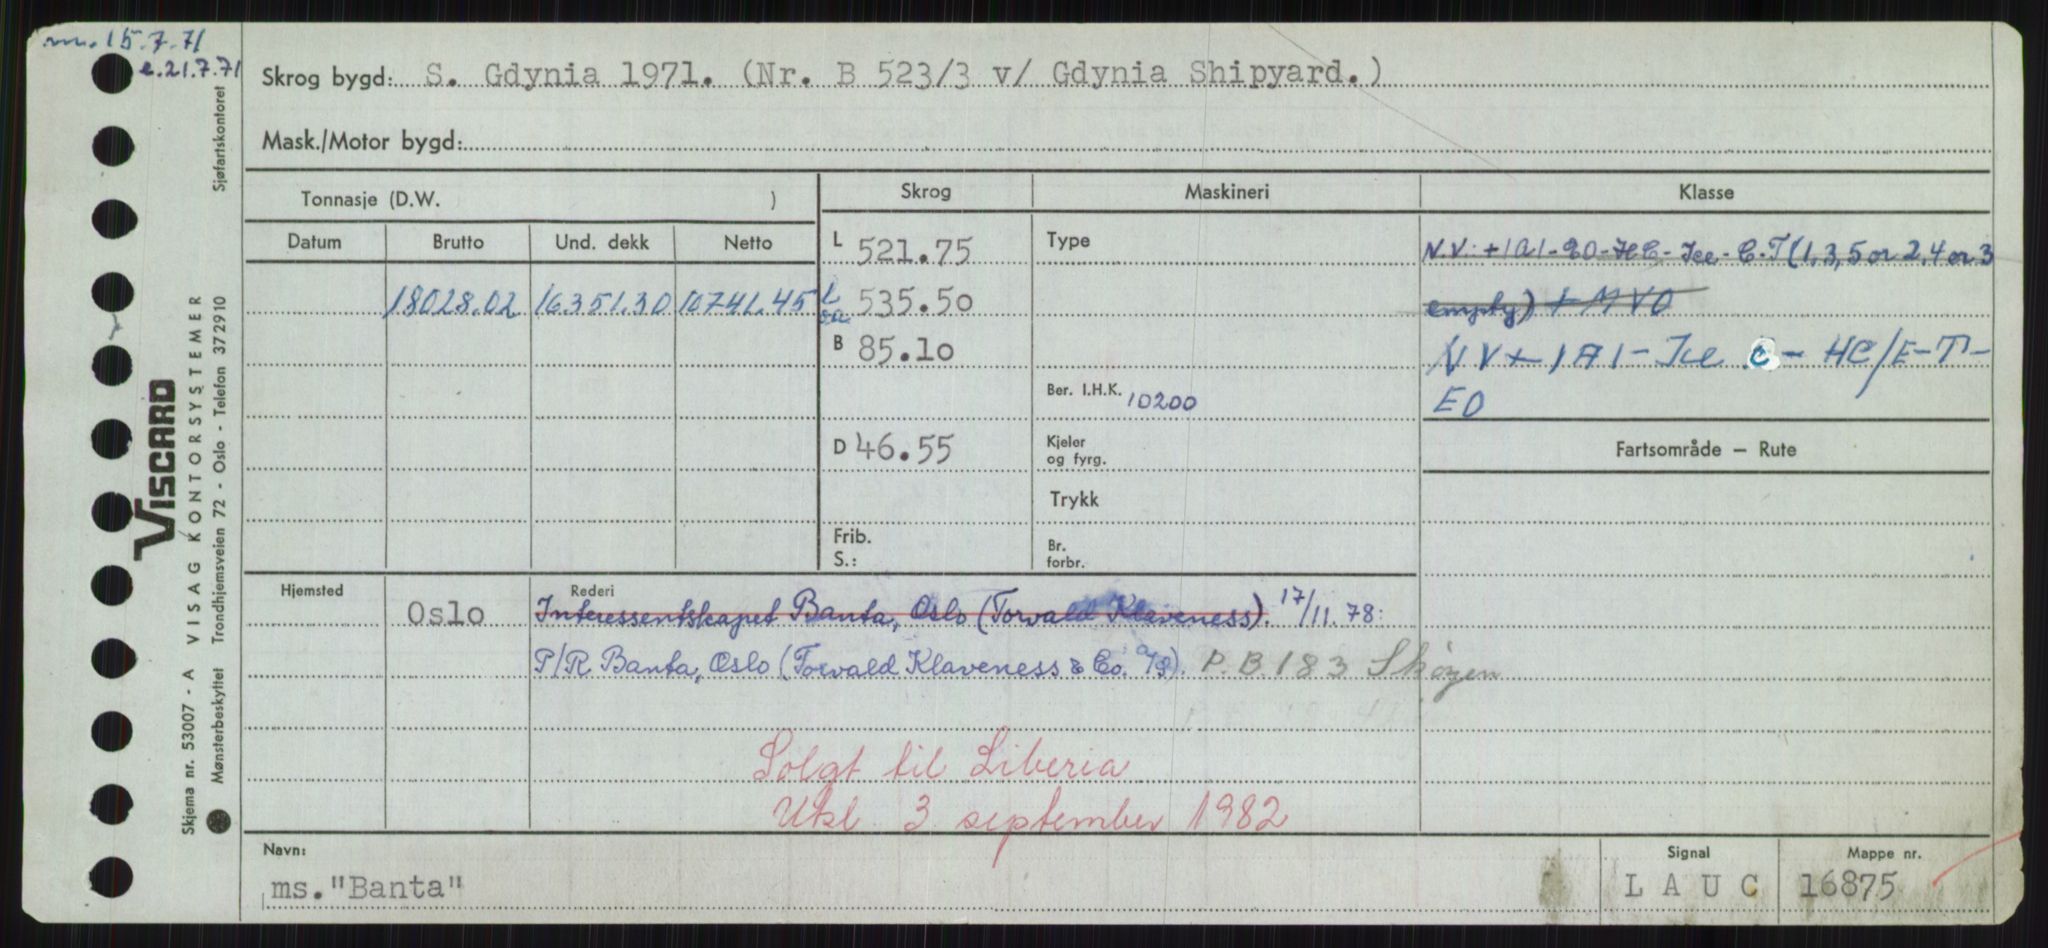 m. 15.7.71
e. 21.7.71
Skrog bygd: S. Gdynia 1971. (Nr. B 523/3 v/ Gdynia Shipyard.)
Mask./Motor bygd:
Tonnasje (D.W. )
Skrog Maskineri Klasse
Datum Brutto Und. dekk Netto
18028.02 16351.30 10741.45
L 521.75
L oa 535.50
B 85.10
D 46.55
Frib.
S.:
Type
Ber. I.H.K. 10200
Kjeler
og fyrg.
Trykk
Br.
forbr.
N.V. +1A1-EO-HC-Ice-C-T(1,3,5 or 2,4 or 3
empty) + MVO
NV+1A1-Ice C - HC/E-T-
EO
Fartsområde – Rute
Hjemsted Rederi
Oslo Interessentskapet Banta, Oslo (Torvald Klaveness). 17/11.78:
P/R Banta, Oslo (Torvald Klaveness & Co. a/s). P.B. 183 Skøyen
Solgt til Liberia
Utkl 3 september 1982
Navn: Signal Mappe nr.
ms. "Banta" L A U C 16875
VISCARD
Skjema nr. 53007 - A VISAG KONTORSYSTEMER
Mønsterbeskyttet Trondhjemsveien 72 - Oslo - Telefon 372910 Sjøfartskontoret